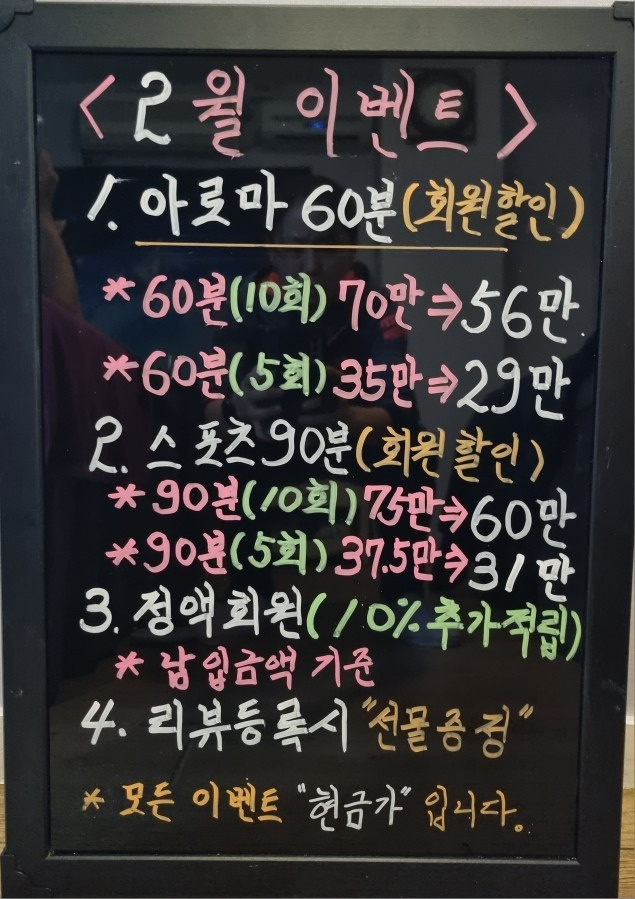 <2월 이벤트>
1. 아로마 60분(회원할인)
* 60분(10회) 70만⇒56만
* 60분(5회) 35만⇒29만
2. 스포츠 90분(회원할인)
* 90분(10회) 75만⇒60만
* 90분(5회) 37.5만⇒31만
3. 정액회원(10% 추가적립)
* 납입금액 기준
4. 리뷰등록시 "선물증정"
* 모든 이벤트 "현금가" 입니다.